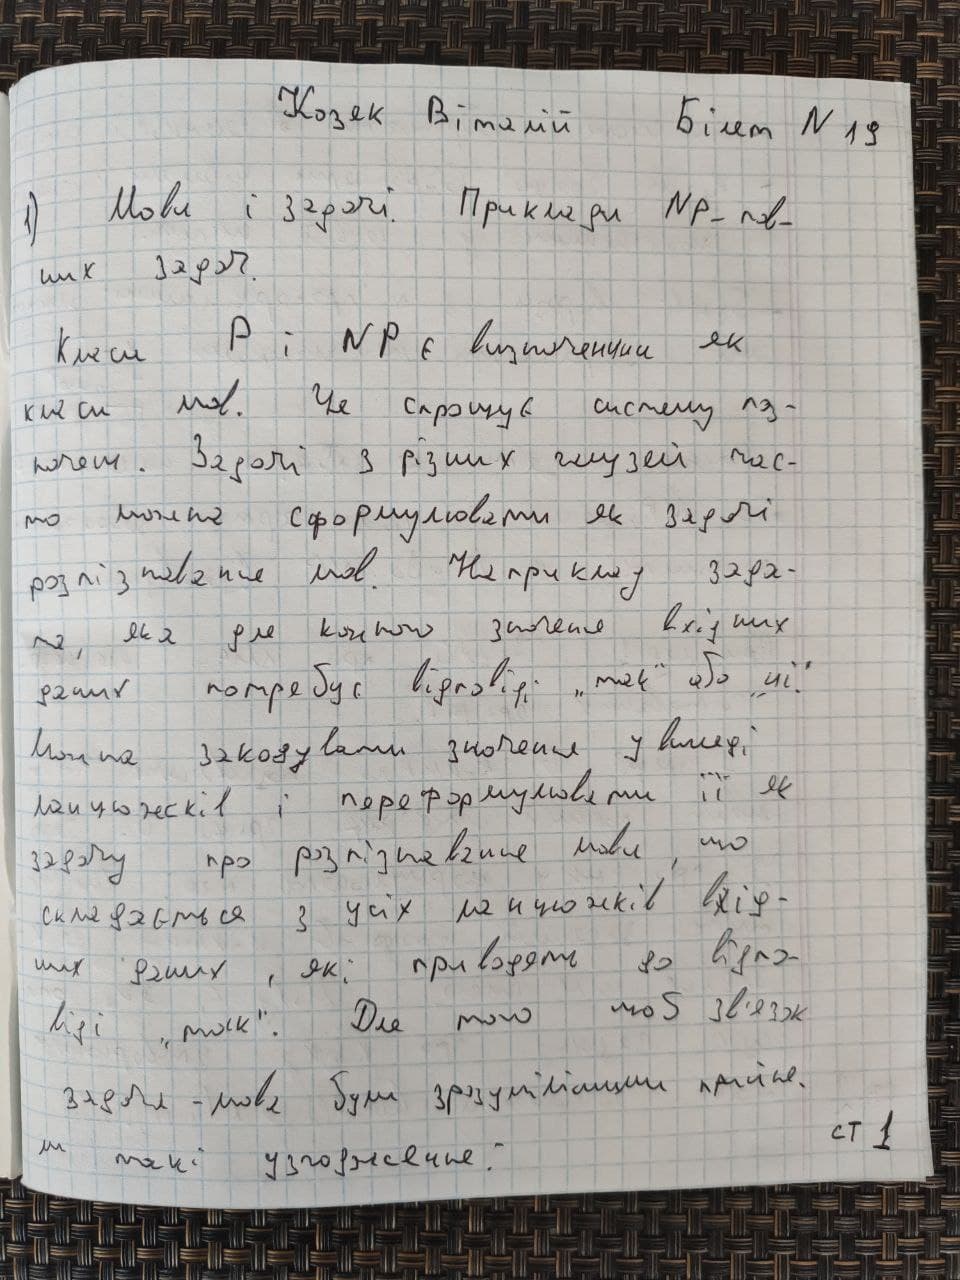 Козяк Віталій Білет N 19
1) Мови і задачі. Приклади NP-пов-
них задач.
Класи P і NP є визначенни як
класи мов. Це спрощує систему поз-
начень. Задачі з різних галузей час-
то можна сформулювати як задачі
розпізнавання мов. Наприклад зада-
ча, яка для кожного значення вхідних
даних потребує відповіді „так" або „ні".
Можна закодувати значення у вигляді
ланцюжків і переформулювати її як
задачу про розпізнавання мови, що
складається з усіх ланцюжків вхід-
них даних, які приводять до відпо-
віді „так". Для того щоб зв'язок
задача-мова були зрозумілішими прийня-
ти такі узгодження:
ст 1